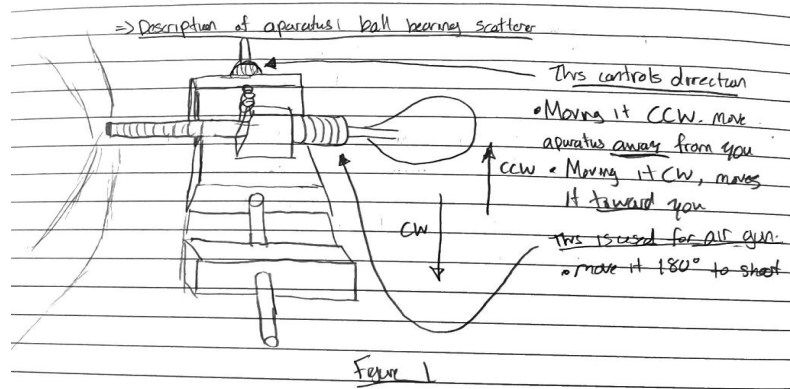 => Description of aparatus: ball bearing scatterer
This controls direction
• Moving it CCW. move
aparatus away from you
CCW • Moving it CW, moves
it toward you
CW
This is used for air gun.
• move it 180° to shoot
Figure 1